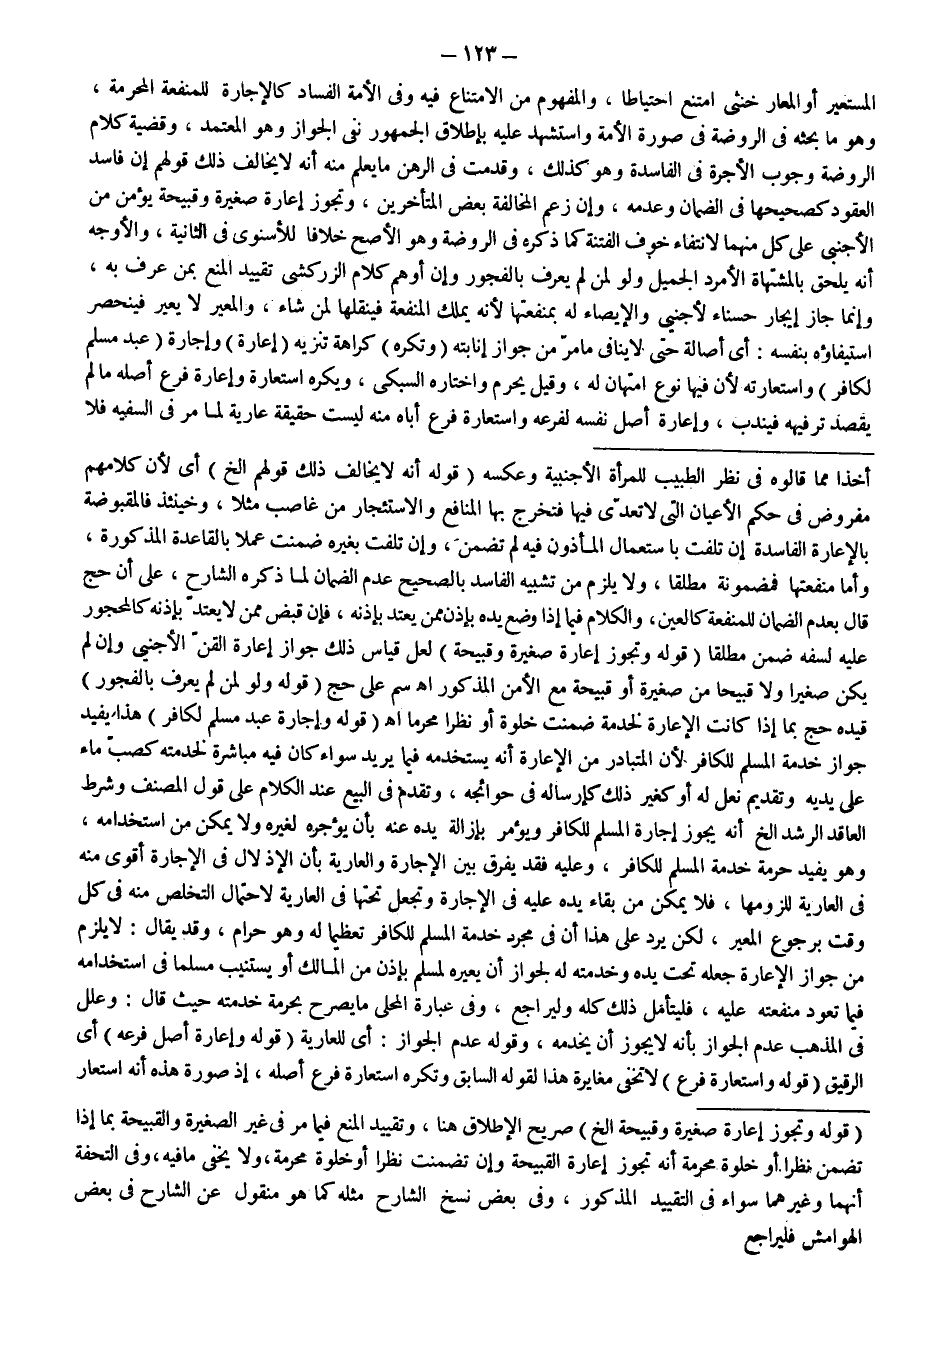 – ١٢٣ –
المستعير أو المعار خنثى امتنع احتياطا ، والمفهوم من الامتناع فيه وفى الأمة الفساد كالإجارة للمنفعة المحرمة ،
وهو ما بحثه فى الروضة فى صورة الأمة واستشهد عليه بإطلاق الجمهور نفى الجواز وهو المعتمد ، وقضية كلام
الروضة وجوب الأجرة فى الفاسدة وهو كذلك ، وقدمت فى الرهن مايعلم منه أنه لايخالف ذلك قولهم إن فاسد
العقود كصحيحها فى الضمان وعدمه ، وإن زعم المخالفة بعض المتأخرين ، وتجوز إعارة صغيرة وقبيحة يؤمن من
الأجنبى على كل منهما لانتفاء خوف الفتنة كما ذكره فى الروضة وهو الأصح خلافا للأسنوى فى الثانية ، والأوجه
أنه يلحق بالمشتهاة الأمرد الجميل ولو لمن لم يعرف بالفجور وإن أوهم كلام الزركشى تقييد المنع بمن عرف به ،
وإنما جاز إيجار حسناء لأجنبي والإيصاء له بمنفعتها لأنه يملك المنفعة فينقلها لمن شاء ، والمعير لا يعير فينحصر
استيفاؤه بنفسه : أى أصالة حتى لاينافى مامرّ من جواز إنابته ( وتكره ) كراهة تنزيه ( إعارة ) وإجارة ( عبد مسلم
لكافر ) واستعارته لأن فيها نوع امتهان له ، وقيل يحرم واختاره السبكى ، ويكره استعارة وإعارة فرع أصله مالم
يقصد ترفيهه فيندب ، وإعارة أصل نفسه لفرعه واستعارة فرع أباه منه ليست حقيقة عارية لما مر فى السفيه فلا
أخذا مما قالوه فى نظر الطبيب للمرأة الأجنبية وعكسه ( قوله أنه لايخالف ذلك قولهم الخ ) أى لأن كلامهم
مفروض فى حكم الأعيان التى لاتعدّى فيها فتخرج بها المنافع والاستئجار من غاصب مثلا ، وحينئذ فالمقبوضة
بالإعارة الفاسدة إن تلفت باستعمال المأذون فيه لم تضمن ، وإن تلفت بغيره ضمنت عملا بالقاعدة المذكورة ،
وأما منفعتها فمضمونة مطلقا ، ولا يلزم من تشبيه الفاسد بالصحيح عدم الضمان لما ذكره الشارح ، على أن حج
قال بعدم الضمان للمنفعة كالعين، والكلام فيما إذا وضع يده بإذن ممن يعتد بإذنه ، فإن قبض ممن لايعتدّ بإذنه كالمحجور
عليه لسفه ضمن مطلقا ( قوله وتجوز إعارة صغيرة وقبيحة ) لعل قياس ذلك جواز إعارة القنّ الأجنبي وإن لم
يكن صغيرا ولا قبيحا من صغيرة أو قبيحة مع الأمن المذكور اه سم على حج ( قوله ولو لمن لم يعرف بالفجور )
قيده حج بما إذا كانت الإعارة لخدمة ضمنت خلوة أو نظرا محرما اه ( قوله وإجارة عبد مسلم لكافر ) هذا يفيد
جواز خدمة المسلم للكافر لأن المتبادر من الإعارة أنه يستخدمه فيما يريد سواء كان فيه مباشرة لخدمته كصبّ ماء
على يديه وتقديم نعل له أو كغير ذلك كإرساله فى حوائجه ، وتقدم فى البيع عند الكلام على قول المصنف وشرط
العاقد الرشد الخ أنه يجوز إجارة المسلم للكافر ويؤمر بإزالة يده عنه بأن يؤجره لغيره ولا يمكن من استخدامه ،
وهو يفيد حرمة خدمة المسلم للكافر ، وعليه فقد يفرق بين الإجارة والعارية بأن الإذلال فى الإجارة أقوى منه
فى العارية للزومها ، فلا يمكن من بقاء يده عليه فى الإجارة وتجعل تحتها فى العارية لاحتمال التخلص منه فى كل
وقت برجوع المعير ، لكن يرد على هذا أن فى مجرد خدمة المسلم للكافر تعظيما له وهو حرام ، وقد يقال : لايلزم
من جواز الإعارة جعله تحت يده وخدمته له لجواز أن يعيره لمسلم بإذن من المالك أو يستنيب مسلما فى استخدامه
فيما تعود منفعته عليه ، فليتأمل ذلك كله وليراجع ، وفى عبارة المحلى مايصرح بحرمة خدمته حيث قال : وعلل
فى المذهب عدم الجواز بأنه لايجوز أن يخدمه ، وقوله عدم الجواز : أى للعارية ( قوله وإعارة أصل فرعه ) أى
الرقيق ( قوله واستعارة فرع ) لاتخفى مغايرة هذا لقوله السابق وتكره استعارة فرع أصله ، إذ صورة هذه أنه استعار
( قوله وتجوز إعارة صغيرة وقبيحة الخ ) صريح الإطلاق هنا ، وتقييد المنع فيما مر فى غير الصغيرة والقبيحة بما إذا
تضمن نظرا أو خلوة محرمة أنه تجوز إعارة القبيحة وإن تضمنت نظرا أو خلوة محرمة، ولا يخفى مافيه، وفى التحفة
أنهما وغيرهما سواء فى التقييد المذكور ، وفى بعض نسخ الشارح مثله كما هو منقول عن الشارح فى بعض
الهوامش فليراجع